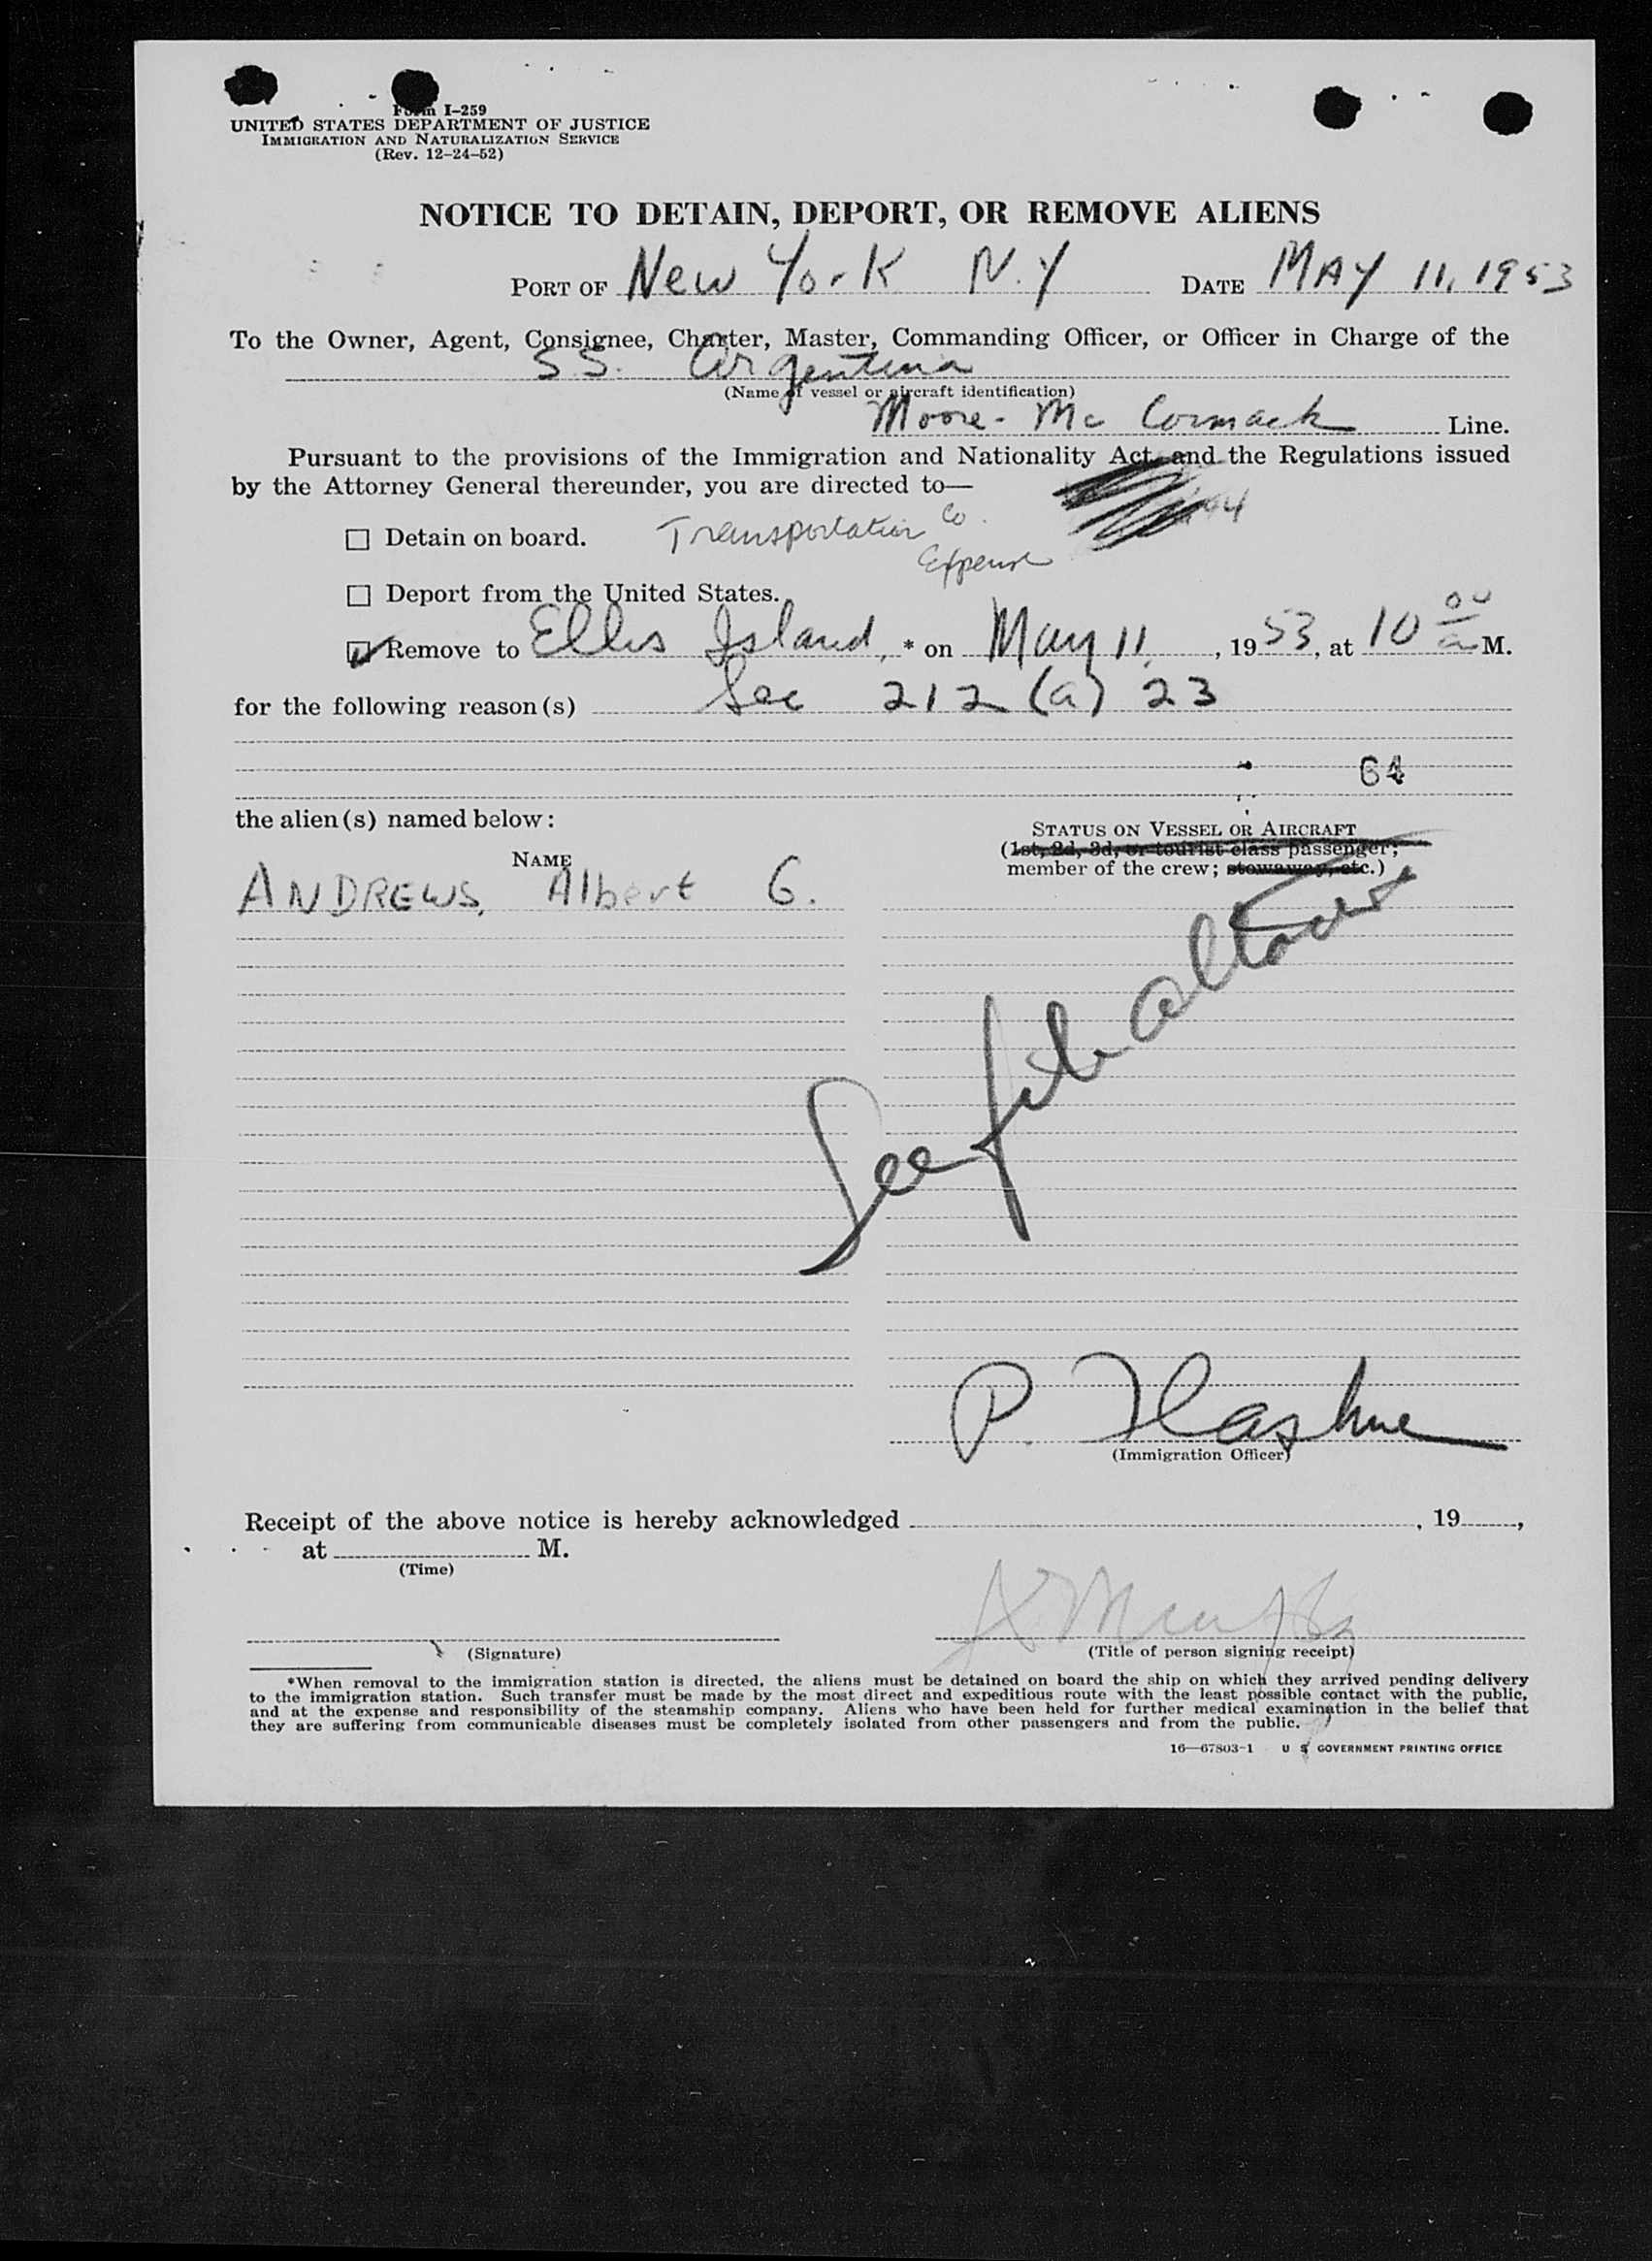 Form I-259
UNITED STATES DEPARTMENT OF JUSTICE
IMMIGRATION AND NATURALIZATION SERVICE
(Rev. 12-24-52)
NOTICE TO DETAIN, DEPORT, OR REMOVE ALIENS
PORT OF New York N.Y DATE MAY 11, 1953
To the Owner, Agent, Consignee, Charter, Master, Commanding Officer, or Officer in Charge of the
S.S. Argentina
(Name of vessel or aircraft identification)
Moore-Mc Cormack Line.
Pursuant to the provisions of the Immigration and Nationality Act and the Regulations issued
by the Attorney General thereunder, you are directed to—
☐ Detain on board. Transportation Co.
Expense
☐ Deport from the United States.
☑ Remove to Ellis Island, * on May 11, , 1953, at 10 00 a M.
for the following reason(s) Sec 212 (a) 23
64
the alien(s) named below:
STATUS ON VESSEL OR AIRCRAFT
(1st, 2d, 3d, or tourist class passenger;
member of the crew; stowaway, etc.)
NAME
ANDREWS, Albert G.
See file
P.
(Immigration Officer)
Receipt of the above notice is hereby acknowledged , 19 ,
at M.
(Time)
(Signature)
(Title of person signing receipt)
*When removal to the immigration station is directed, the aliens must be detained on board the ship on which they arrived pending delivery
to the immigration station. Such transfer must be made by the most direct and expeditious route with the least possible contact with the public,
and at the expense and responsibility of the steamship company. Aliens who have been held for further medical examination in the belief that
they are suffering from communicable diseases must be completely isolated from other passengers and from the public.
16—67803-1 U S GOVERNMENT PRINTING OFFICE